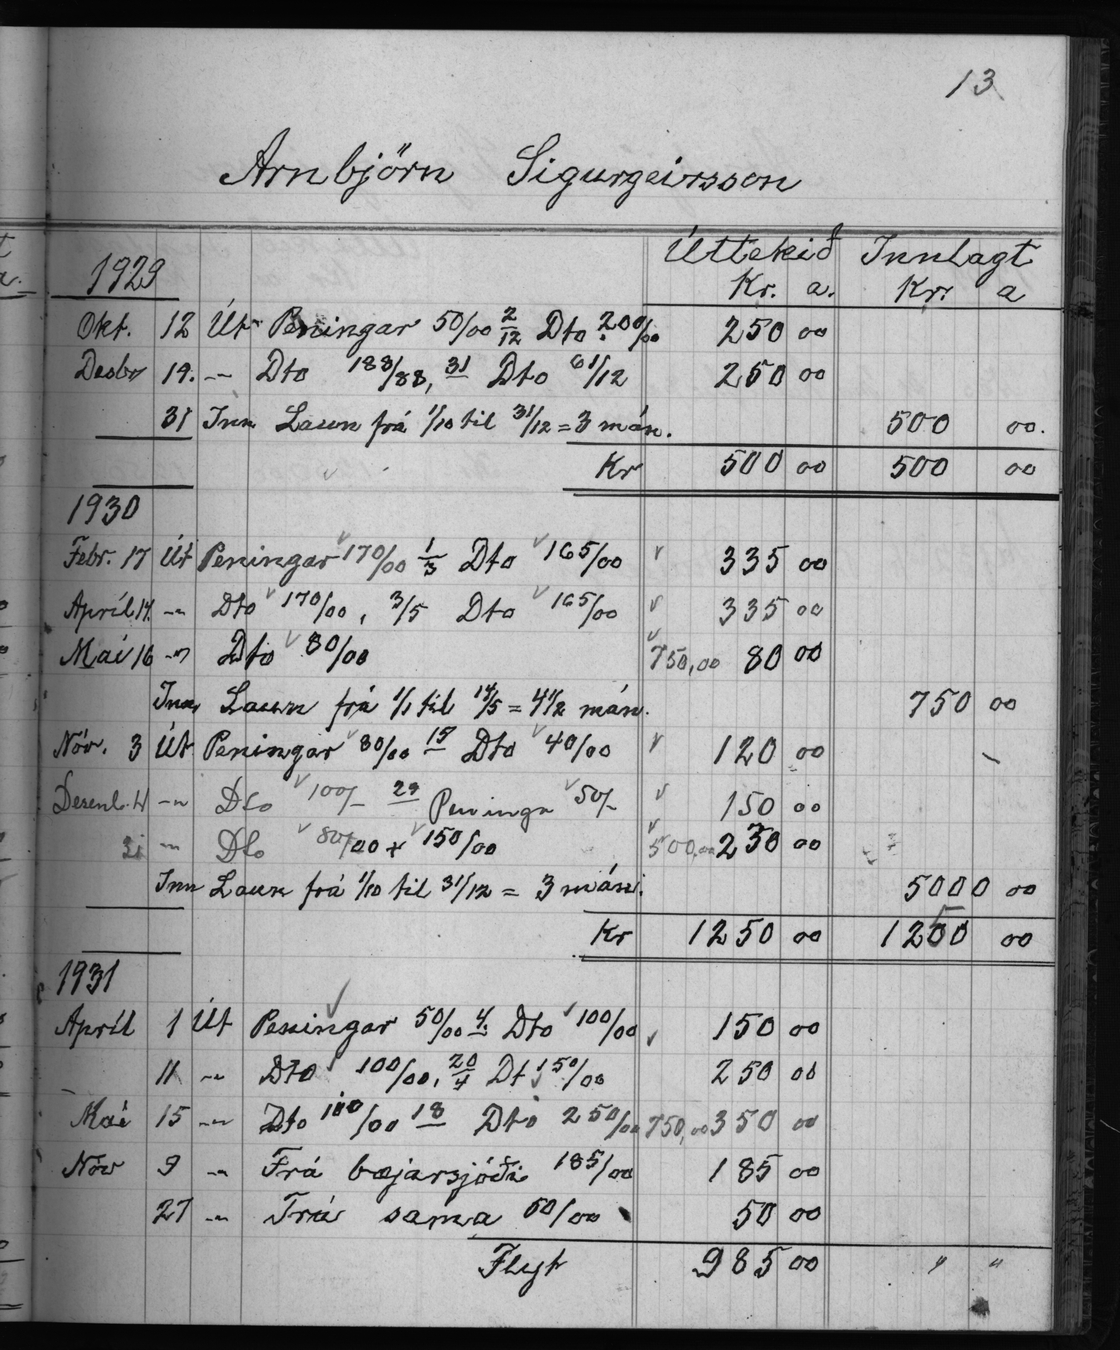 13
Arnbjörn Sigurgeirsson
Úttekið Innlagt
1929 Kr. a. Kr. a
Okt. 12 Út Peningar 50/00 2/12 Dto. 200/00 250 00
Desbr 19. -"- Dto 188/88, 31 Dto 61/12 250 00
31 Inn Laun frá 1/10 til 31/12 = 3 mán. 500 00.
Kr 500 00 500 00
1930
Febr. 17 Út Peningar 170/00 1/3 Dto 165/00 335 00
Apríl 14. -"- Dto 170/00, 3/5 Dto 165/00 335 00
Maí 16 -"- Dto 80/00 750,00 80 00
Inn Laun frá 1/1 til 14/5 = 4 1/2 mán. 750 00
Nóv. 3 Út Peningar 80/00 15 Dto 40/00 120 00
Desemb. 4 -"- Dto 100/- 29 Peninga 50/- 150 00
31 -"- Dto 80/00 + 150/00 500,00 230 00
Inn Laun frá 1/10 til 31/12 = 3 mán. 5000 00
Kr 1250 00 1250 00
1931
Apríl 1 Út Peningar 50/00 4. Dto 100/00 150 00
11 -"- Dto 100/00, 20/4 Dto 150/00 250 00
Maí 15 -"- Dto 100/00 18 Dto 250/00 750,00 350 00
Nóv 9 -"- Frá bæjarsjóði 185/00 185 00
27 -"- Frá sama 50/00 50 00
Flyt 985 00 " "